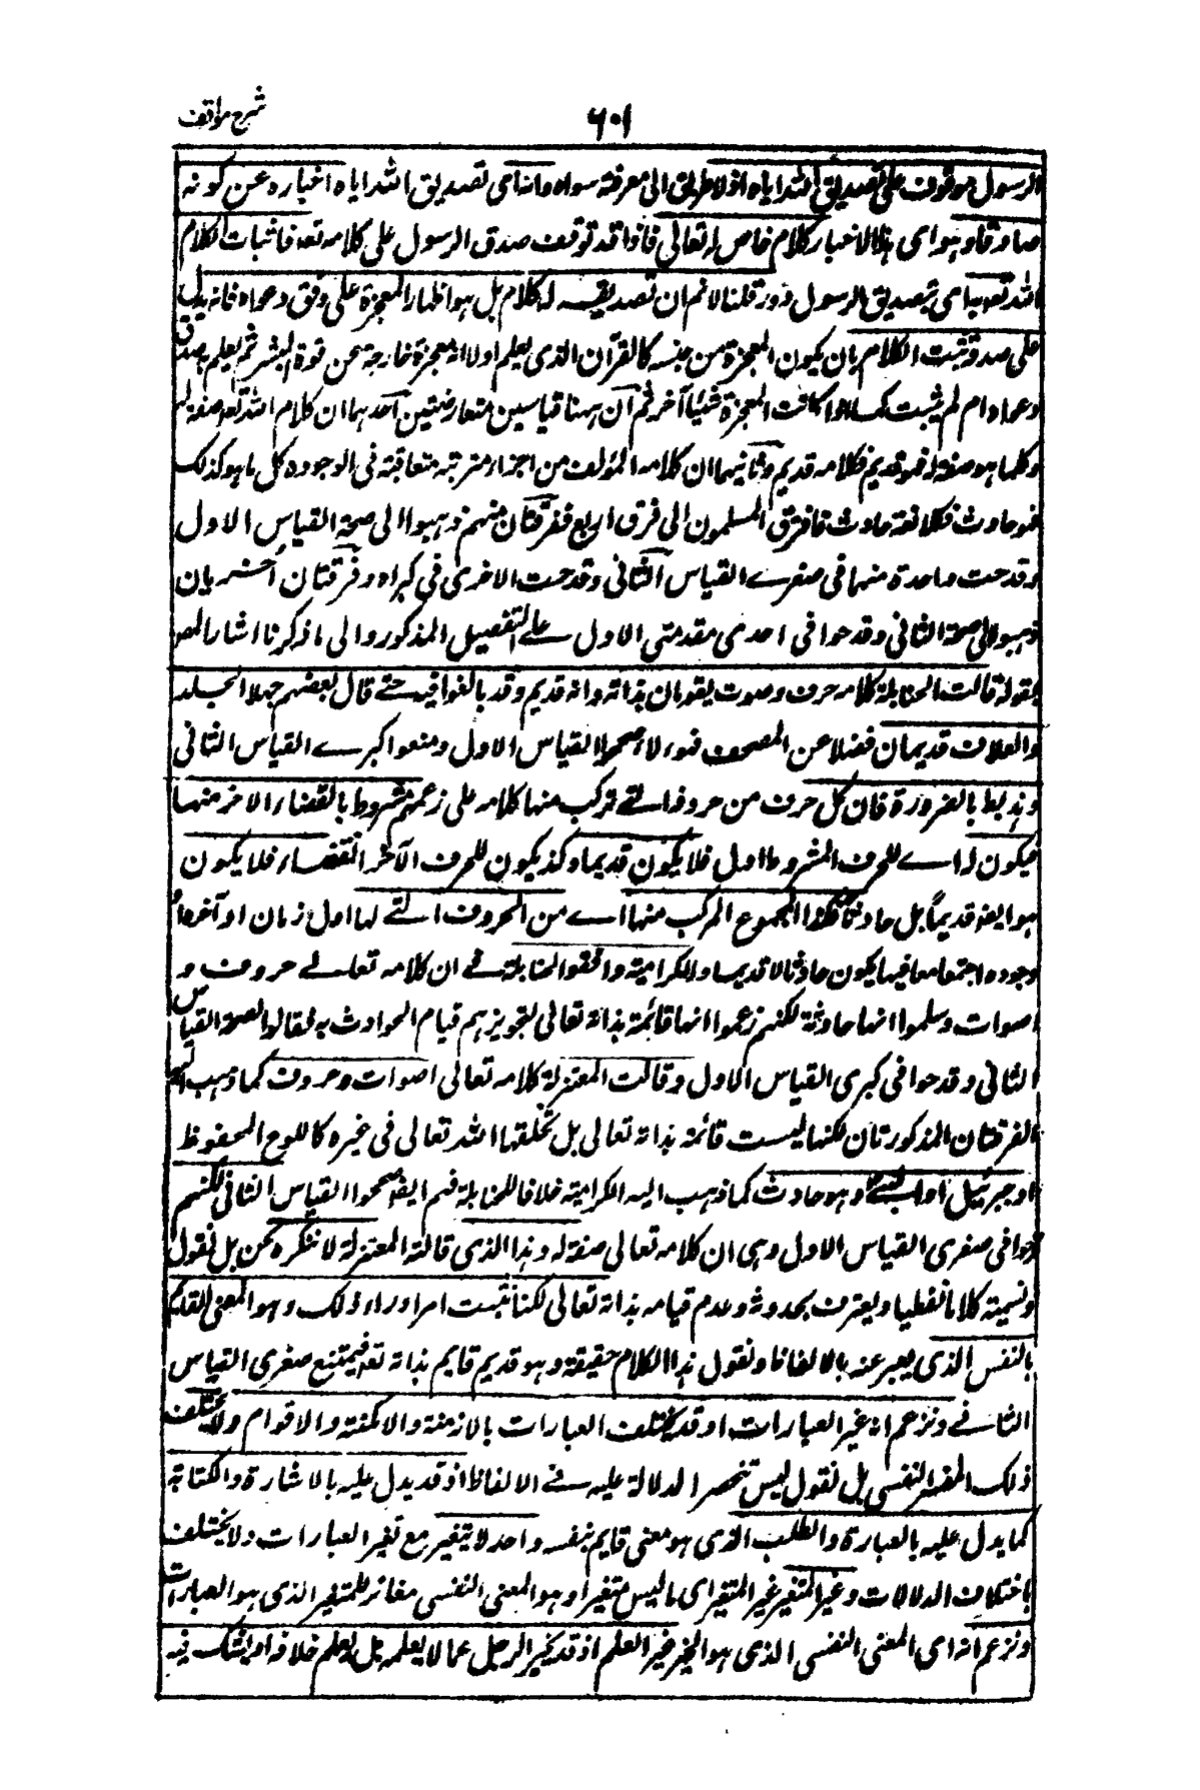 شرح مواقف
٦٠١
الرسول موقوف على تصديق الله اياه اذ لا طريق الى معرفة سواه وانه اى تصديق الله اياه اخباره عن كونه
صادقا وهو اى هذا الاخبار كلام خاص له تعالى فاذا قد توقف صدق الرسول على كلامه تعه فاثبات الكلام
لله تعه به اى بصديق الرسول دور قلنا لا نم ان تصديقه له كلام بل هو اظهار المعجزة على وفق دعواه فانه يدل
على صدقه ثبت الكلام بان يكون المعجزة من جنسه كالقرآن الذى يعلم اولا انه معجزة خارجة عن قوة البشر ثم يعلم به صدق
دعواه ام لم يثبت كما اذا كانت المعجزة شيئا آخر ثم ان ههنا قياسين متعارضين احدهما ان كلام الله تعه صفة له
وكلما هو صفة له فهو قديم فكلامه قديم وثانيهما ان كلامه المؤلف من اجزاء مترتبة متعاقبة فى الوجود وكل ما هو كذلك
فهو حادث فكلامه حادث فافترق المسلمون الى فرق اربع ففرقتان منهم ذهبوا الى صحة القياس الاول
وقدحت واحدة منهما فى صغرى القياس الثانى وقدحت الاخرى فى كبراه وفرقتان اخريان
ذهبوا الى صحة الثانى وقدحوا فى احدى مقدمتى الاول على التفصيل المذكور والى ما ذكرنا اشار المص
بقوله قالت الحنابلة كلامه حرف وصوت يقومان بذاته وانه قديم وقد بالغوا فيه حتى قال بعضهم جهلا الجلد
والغلاف قديمان فضلا عن المصحف فهؤلاء صححوا القياس الاول ومنعوا كبرى القياس الثانى
وهذا بط بالضرورة فان كل حرف من حروفه التى تركب منها كلامه على زعمهم مشروط بانقضاء الاخر منها
فيكون له اى للحرف المشروط اول فلا يكون قديما وكذا يكون للحرف الآخر انقضاء فلا يكون
هو ايضه قديماً بل حادثا فكذا المجموع المركب منها اى من الحروف التى لها اول زمان او آخره
وجوده اجتمعا معا فيها يكون حادثا لا قديما والكرامية وافقوا الحنابلة فى ان كلامه تعالى حروف و
اصوات وسلموا انها حادثة لكنهم زعموا انها قائمة بذاته تعالى لتجويزهم قيام الحوادث به فقالوا لصحة القياس
الثانى وقدحوا فى كبرى القياس الاول وقالت المعتزلة كلامه تعالى اصوات وحروف كما ذهب اليه
الفرقتان المذكورتان لكنها ليست قائمة بذاته تعالى بل يخلقها الله تعالى فى غيره كاللوح المحفوظ
او جبرئيل او النبى وهو حادث كما ذهب اليه الكرامية خلافا للحنابلة فهم ايضه صححوا القياس الثانى لكنهم
قدحوا فى صغرى القياس الاول وهى ان كلامه تعالى صفة له وهذا الذى قالته المعتزلة لا ننكره نحن بل نقول
ونسميه كلاما لفظيا ونعترف بحدوثه وعدم قيامه بذاته تعالى لكنا نثبت امرا وراء ذلك وهو المعنى القايم
بالنفس الذى يعبر عنه بالالفاظ ونقول هذا الكلام حقيقة وهو قديم قايم بذاته تعه فيمتنع صغرى القياس
الثانى ونزعم انه غير العبارات اذ قد يختلف العبارات بالازمنة والامكنة والاقوام ولا يختلف
ذلك المعنى النفسى بل نقول ليس تنحصر الدلالة عليه فى الالفاظ اذ قد يدل عليه بالاشارة والكتابة
كما يدل عليه بالعبارة والطلب الذى هو معنى قايم بنفسه واحد لا يتغير مع تغير العبارات ولا يختلف
باختلاف الدلالات وغير المتغير غير المتغير اى ما ليس متغيرا وهو المعنى النفسى مغائر للمتغير الذى هو العبارات
ونزعم انه اى المعنى النفسى الذى هو الخبر غير العلم اذ قد يخبر الرجل عما لا يعلمه بل يعلم خلافه او يشك فيه